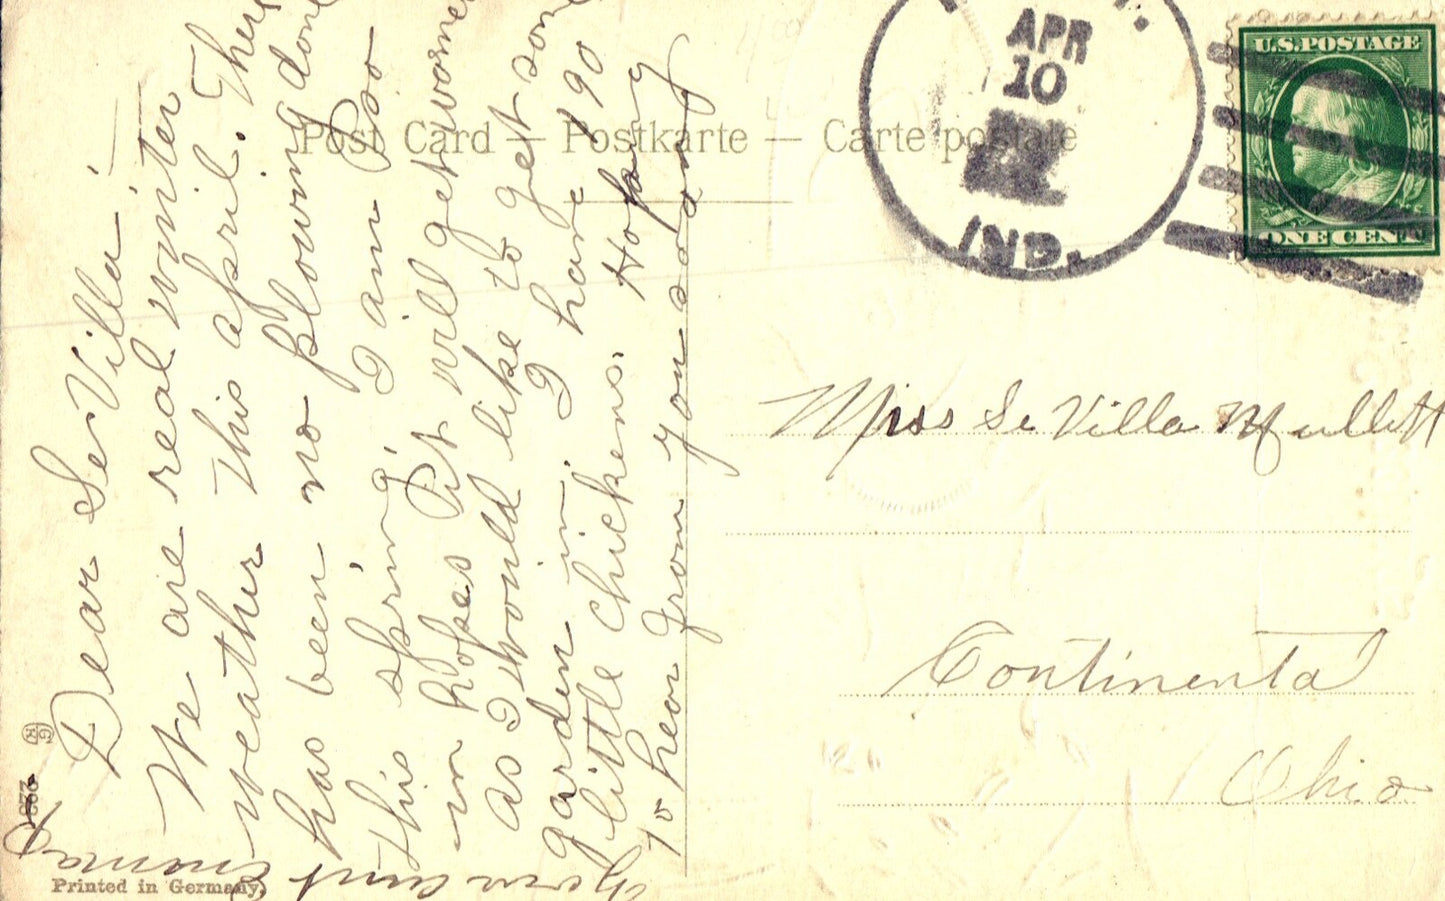 Post Card — Postkarte — Carte postale
APR
10
IND.
U.S. POSTAGE
ONE CENT
Dear SeVilla
We are real winter
weather this april. There
has been no plowing done
this spring, I am too
in hopes it will get warmer
as I would like to get some
garden in. I have 190
little chickens. Hoping
to hear from you soon
Aunt Emma
Miss SeVilla Mullett
Continental
Ohio
Printed in Germany